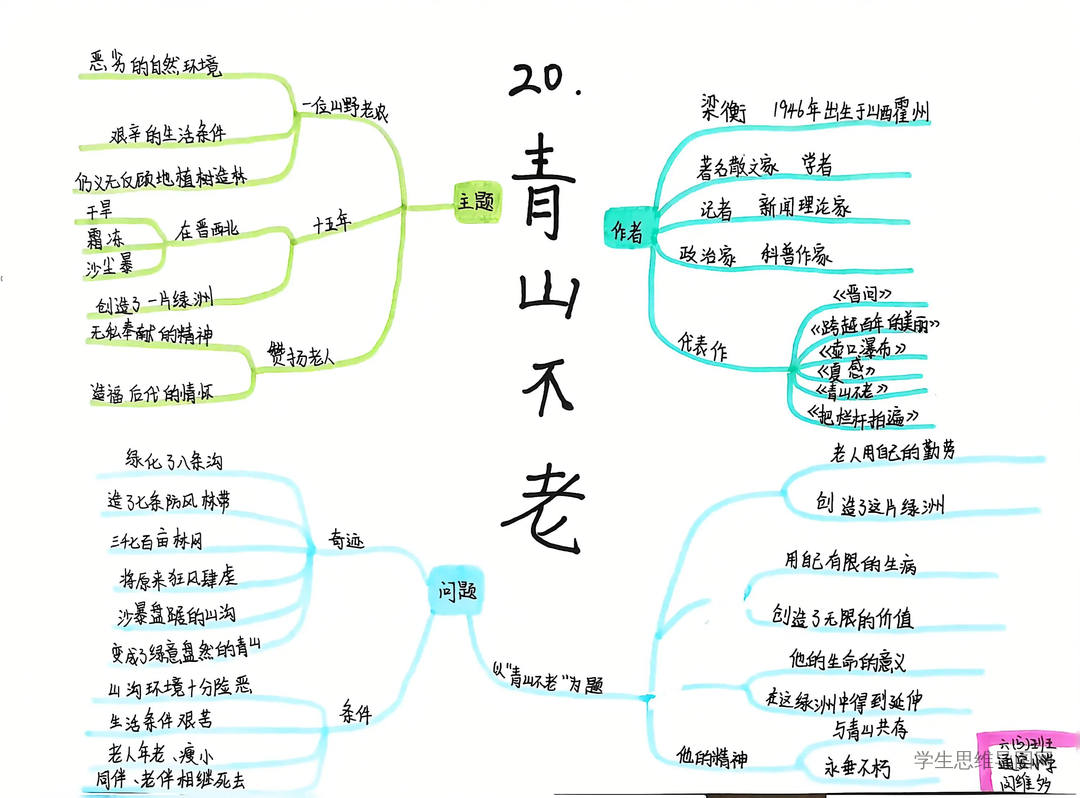 20.
青山不老
主题
一位山野老农
恶劣的自然环境
艰辛的生活条件
仍义无反顾地植树造林
十五年
在晋西北
干旱
霜冻
沙尘暴
创造了一片绿洲
赞扬老人
无私奉献的精神
造福后代的情怀
作者
梁衡 1946年出生于山西霍州
著名散文家 学者
记者 新闻理论家
政治家 科普作家
代表作
《晋问》
《跨越百年的美丽》
《壶口瀑布》
《夏感》
《青山不老》
《把栏杆拍遍》
问题
奇迹
绿化了八条沟
造了七条防风林带
三千七百亩林网
将原来狂风肆虐
沙暴盘踞的山沟
变成了绿意盎然的青山
条件
山沟环境十分险恶
生活条件艰苦
老人年老、瘦小
同伴、老伴相继死去
以"青山不老"为题
老人用自己的勤劳
创造了这片绿洲
用自己有限的生病
创造了无限的价值
他的生命的意义
在这绿洲中得到延伸
他的精神
与青山共存
永垂不朽
学生思维导图网